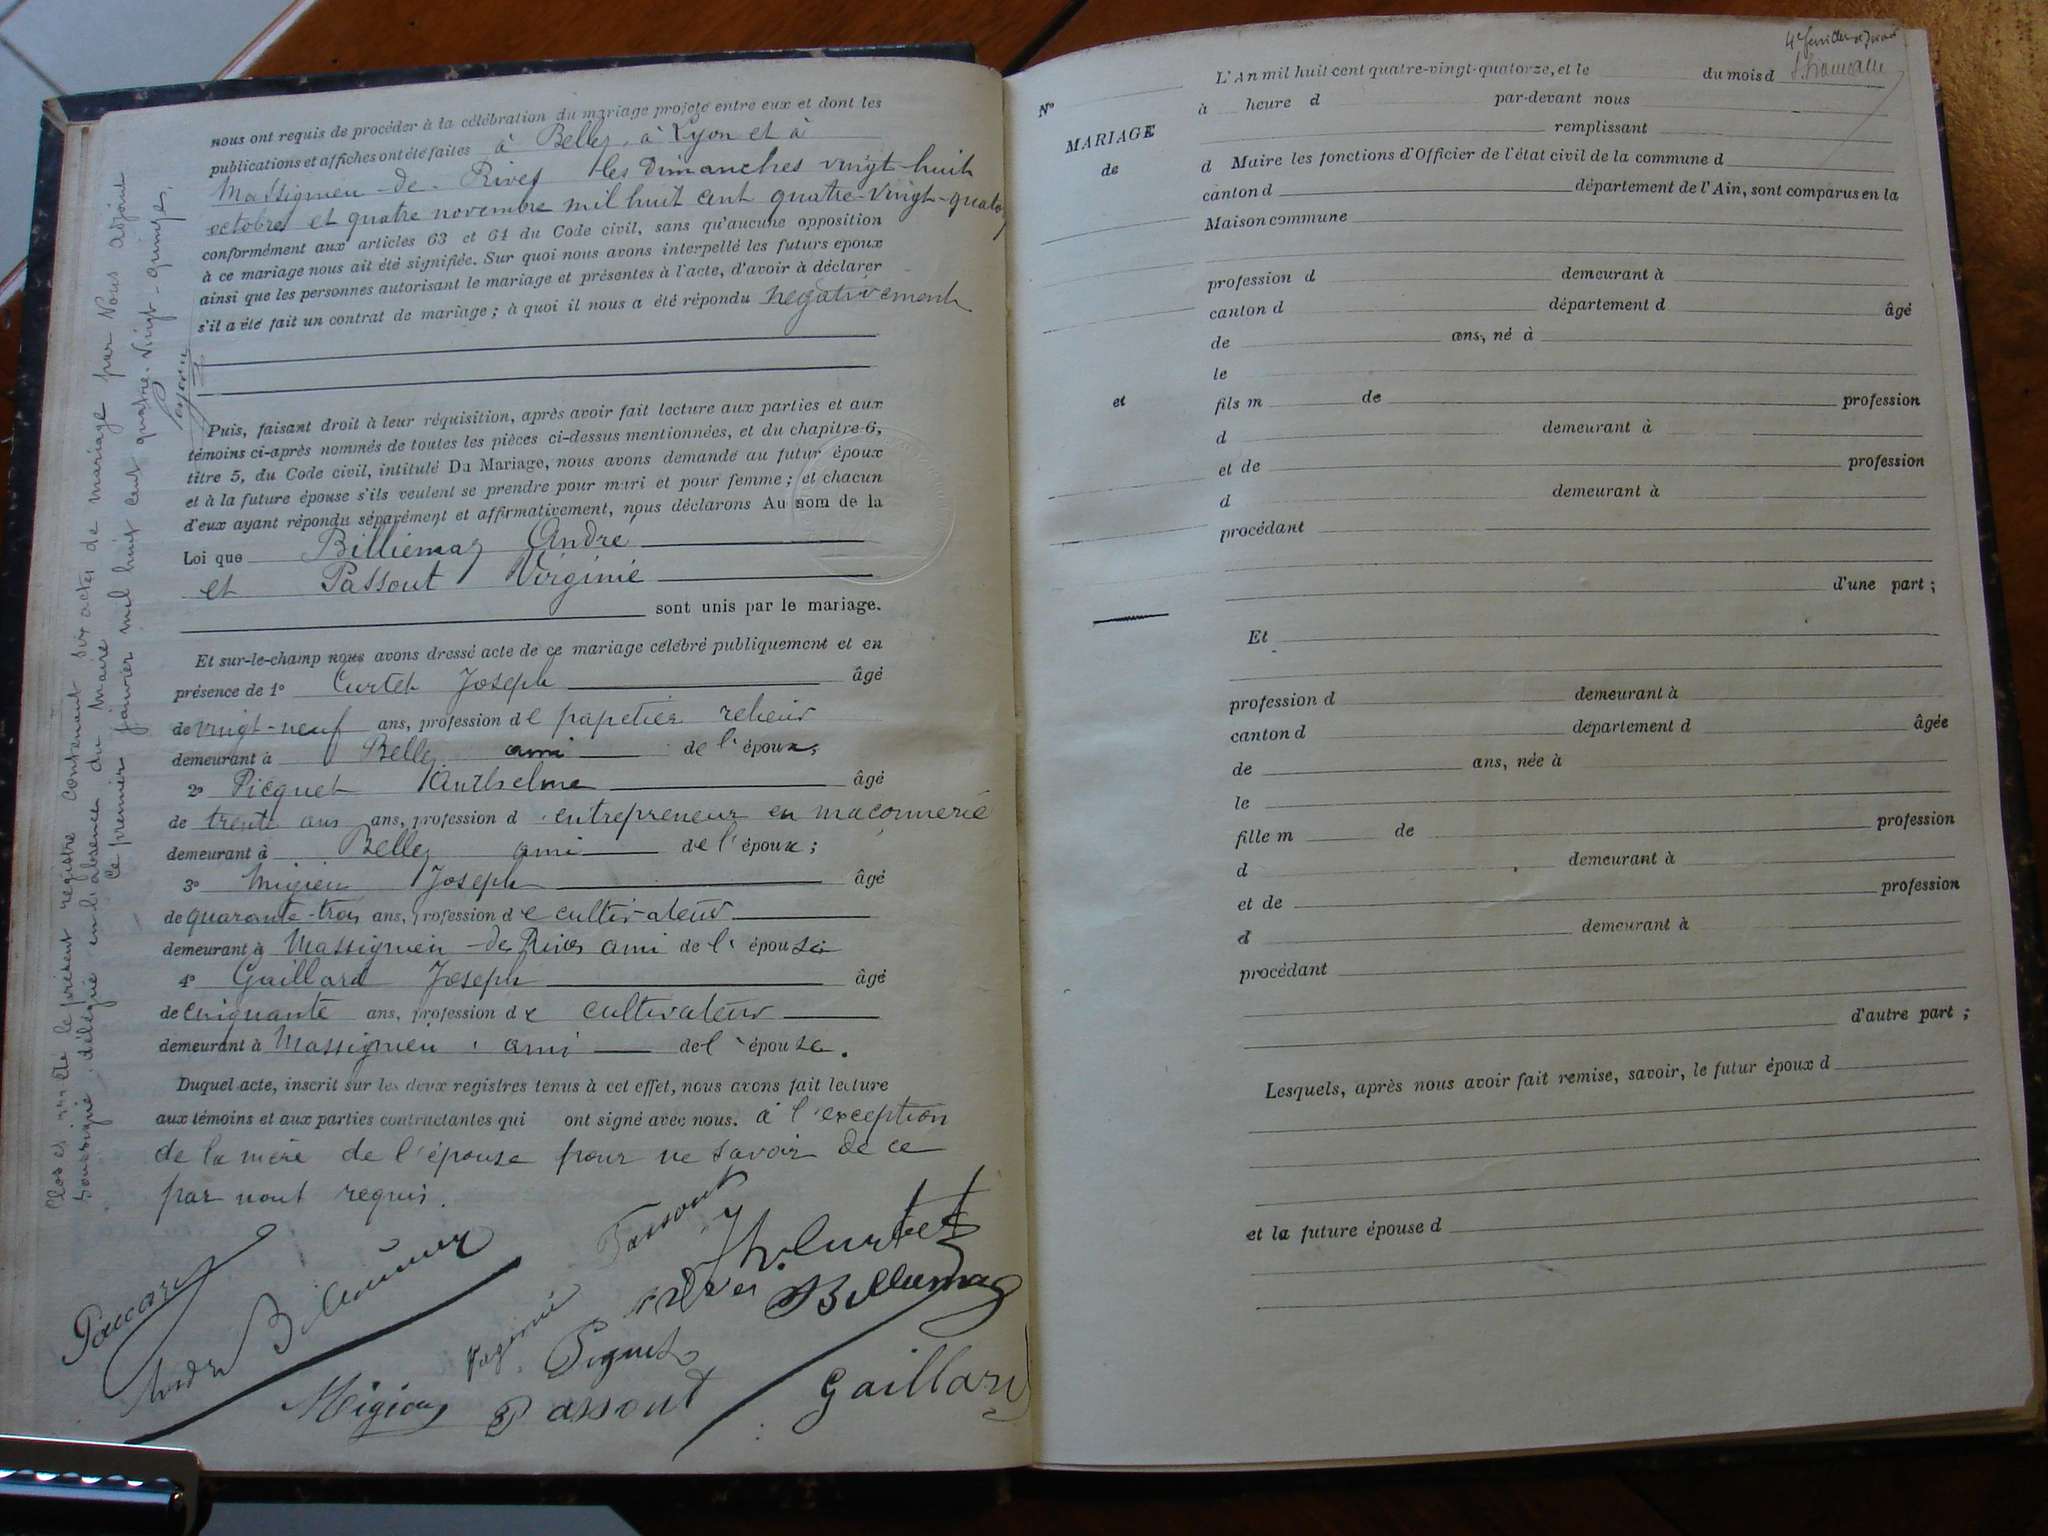 nous ont requis de procéder à la célébration du mariage projeté entre eux et dont les
publications et affiches ont été faites à Belley, à Lyon et à
Massignieu-de-Rives les Dimanches vingt-huit
octobre et quatre novembre mil huit cent quatre-vingt-quatorze
conformément aux articles 63 et 64 du Code civil, sans qu'aucune opposition
à ce mariage nous ait été signifiée. Sur quoi nous avons interpellé les futurs époux
ainsi que les personnes autorisant le mariage et présentes à l'acte, d'avoir à déclarer
s'il a été fait un contrat de mariage ; à quoi il nous a été répondu négativement
Puis, faisant droit à leur réquisition, après avoir fait lecture aux parties et aux
témoins ci-après nommés de toutes les pièces ci-dessus mentionnées, et du chapitre 6,
titre 5, du Code civil, intitulé Du Mariage, nous avons demandé au futur époux
et à la future épouse s'ils veulent se prendre pour mari et pour femme ; et chacun
d'eux ayant répondu séparément et affirmativement, nous déclarons Au nom de la
Loi que Billiemaz André
et Passout Virginie
sont unis par le mariage.
Et sur-le-champ nous avons dressé acte de ce mariage célébré publiquement et en
présence de 1° Curtet Joseph âgé
de vingt-neuf ans, profession de papetier relieur
demeurant à Belley ami de l'époux,
2° Picquet Anthelme âgé
de trente ans ans, profession d'entrepreneur en maçonnerie
demeurant à Belley ami de l'époux ;
3° Migieu Joseph âgé
de quarante-trois ans, profession de cultivateur
demeurant à Massignieu-de-Rives ami de l'épouse
4° Gaillard Joseph âgé
de cinquante ans, profession de cultivateur
demeurant à Massignieu, ami de l'épouse.
Duquel acte, inscrit sur les deux registres tenus à cet effet, nous avons fait lecture
aux témoins et aux parties contractantes qui ont signé avec nous. à l'exception
de la mère de l'épouse pour ne savoir de ce
par nous requis.
Passout
Jh. Curtet
André Billiemaz
Virginie
Billiemaz
Piquet
Migieu
Passout
Gaillard
Clos et arrêté le présent registre contenant six actes de mariage par Nous adjoint
soussigné, délégué en l'absence du Maire
ce premier janvier mil huit cent quatre-vingt-quinze.
L'An mil huit cent quatre-vingt-quatorze, et le du mois d
N° à heure d par-devant nous
MARIAGE remplissant
de d Maire les fonctions d'Officier de l'état civil de la commune d
canton d département de l'Ain, sont comparus en la
Maison commune
profession d demeurant à
canton d département d âgé
de ans, né à
le
et fils m de profession
d demeurant à
et de profession
d demeurant à
procédant
d'une part ;
Et
profession d demeurant à
canton d département d âgée
de ans, née à
le
fille m de profession
d demeurant à
et de profession
d demeurant à
procédant
d'autre part ;
Lesquels, après nous avoir fait remise, savoir, le futur époux d
et la future épouse d